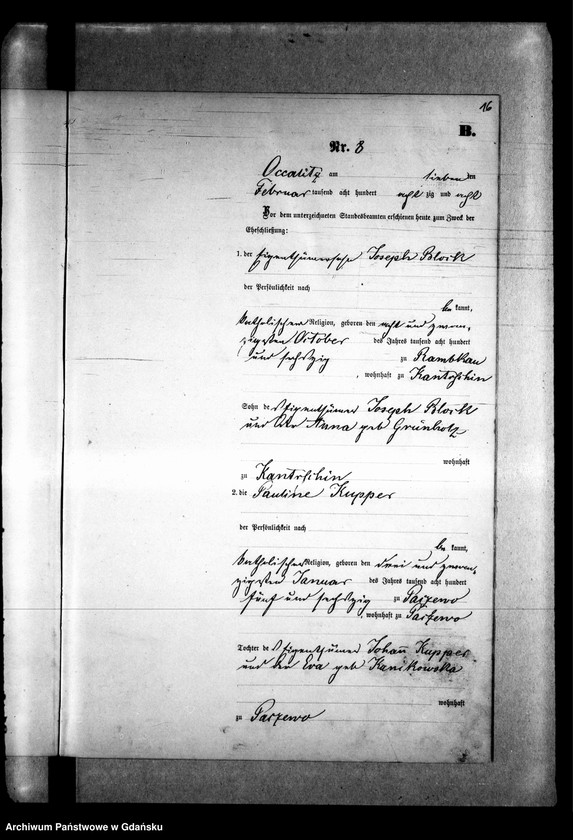 16
B.
Nr. 8
Occalitz am sieben ten
Februar tausend acht hundert acht zig und acht
Vor dem unterzeichneten Standesbeamten erschienen heute zum Zweck der
Eheschließung:
1. der Eigenthümersohn Joseph Block
der Persönlichkeit nach
be kannt,
katholischer Religion, geboren den acht und zwan-
zigsten October des Jahres tausend acht hundert
und sechszig zu Rambkau
, wohnhaft zu Kantrschin
Sohn des Eigenthümer Joseph Block
und der Anna geb Grünholz
wohnhaft
zu Kantrschin
2. die Pauline Kupper
der Persönlichkeit nach
be kannt,
katholischer Religion, geboren den drei und zwan-
zigsten Januar des Jahres tausend acht hundert
fünf und sechszig zu Paszewo
, wohnhaft zu Paszewo
Tochter des Eigenthümer Johann Kupper
und der Eva geb Kanikowska
wohnhaft
zu Paszewo
Archiwum Państwowe w Gdańsku